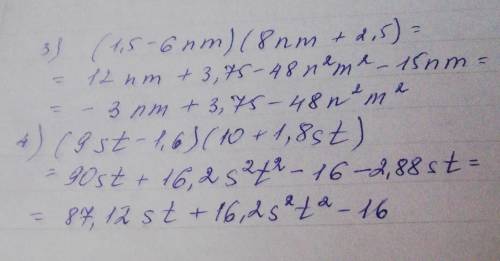 3) (1,5-6nm)(8nm+2,5)=
= 12nm+3,75-48n²m²-15nm=
= -3nm+3,75-48n²m²
4) (9st-1,6)(10+1,8st)
= 90st+16,2s²t²-16-2,88st=
= 87,12st+16,2s²t²-16